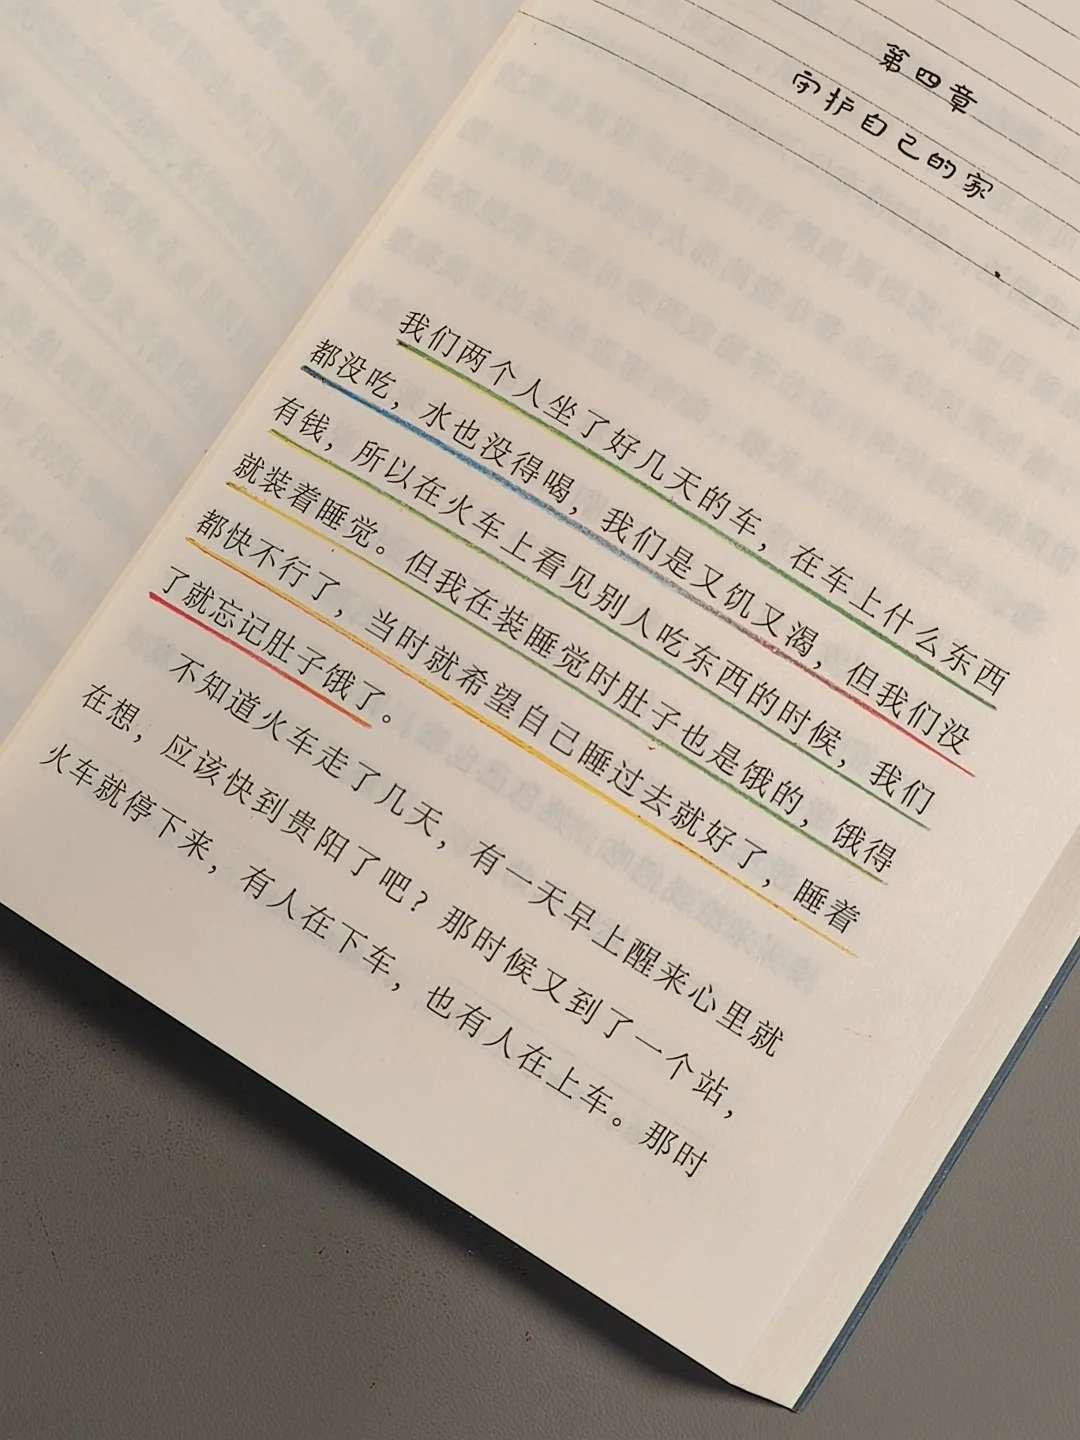 第四章
守护自己的家
我们两个人坐了好几天的车，在车上什么东西
都没吃，水也没得喝，我们是又饥又渴，但我们没
有钱，所以在火车上看见别人吃东西的时候，我们
就装着睡觉。但我在装睡觉时肚子也是饿的，饿得
都快不行了，当时就希望自己睡过去就好了，睡着
了就忘记肚子饿了。
不知道火车走了几天，有一天早上醒来心里就
在想，应该快到贵阳了吧？那时候又到了一个站，
火车就停下来，有人在下车，也有人在上车。那时